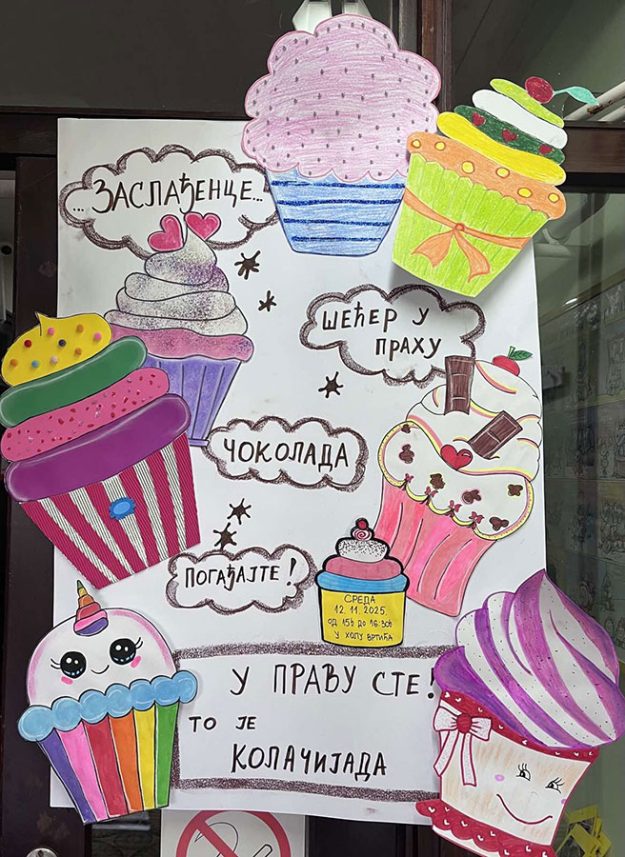 ...ЗАСЛАЂЕНЦЕ...
ШЕЋЕР У
ПРАХУ
ЧОКОЛАДА
ПОГАЂАЈТЕ!
СРЕДА
12.11.2025.
ОД 15h ДО 16:30h
У ХОЛУ ВРТИЋА
У ПРАВУ СТЕ!
ТО ЈЕ
КОЛАЧИЈАДА